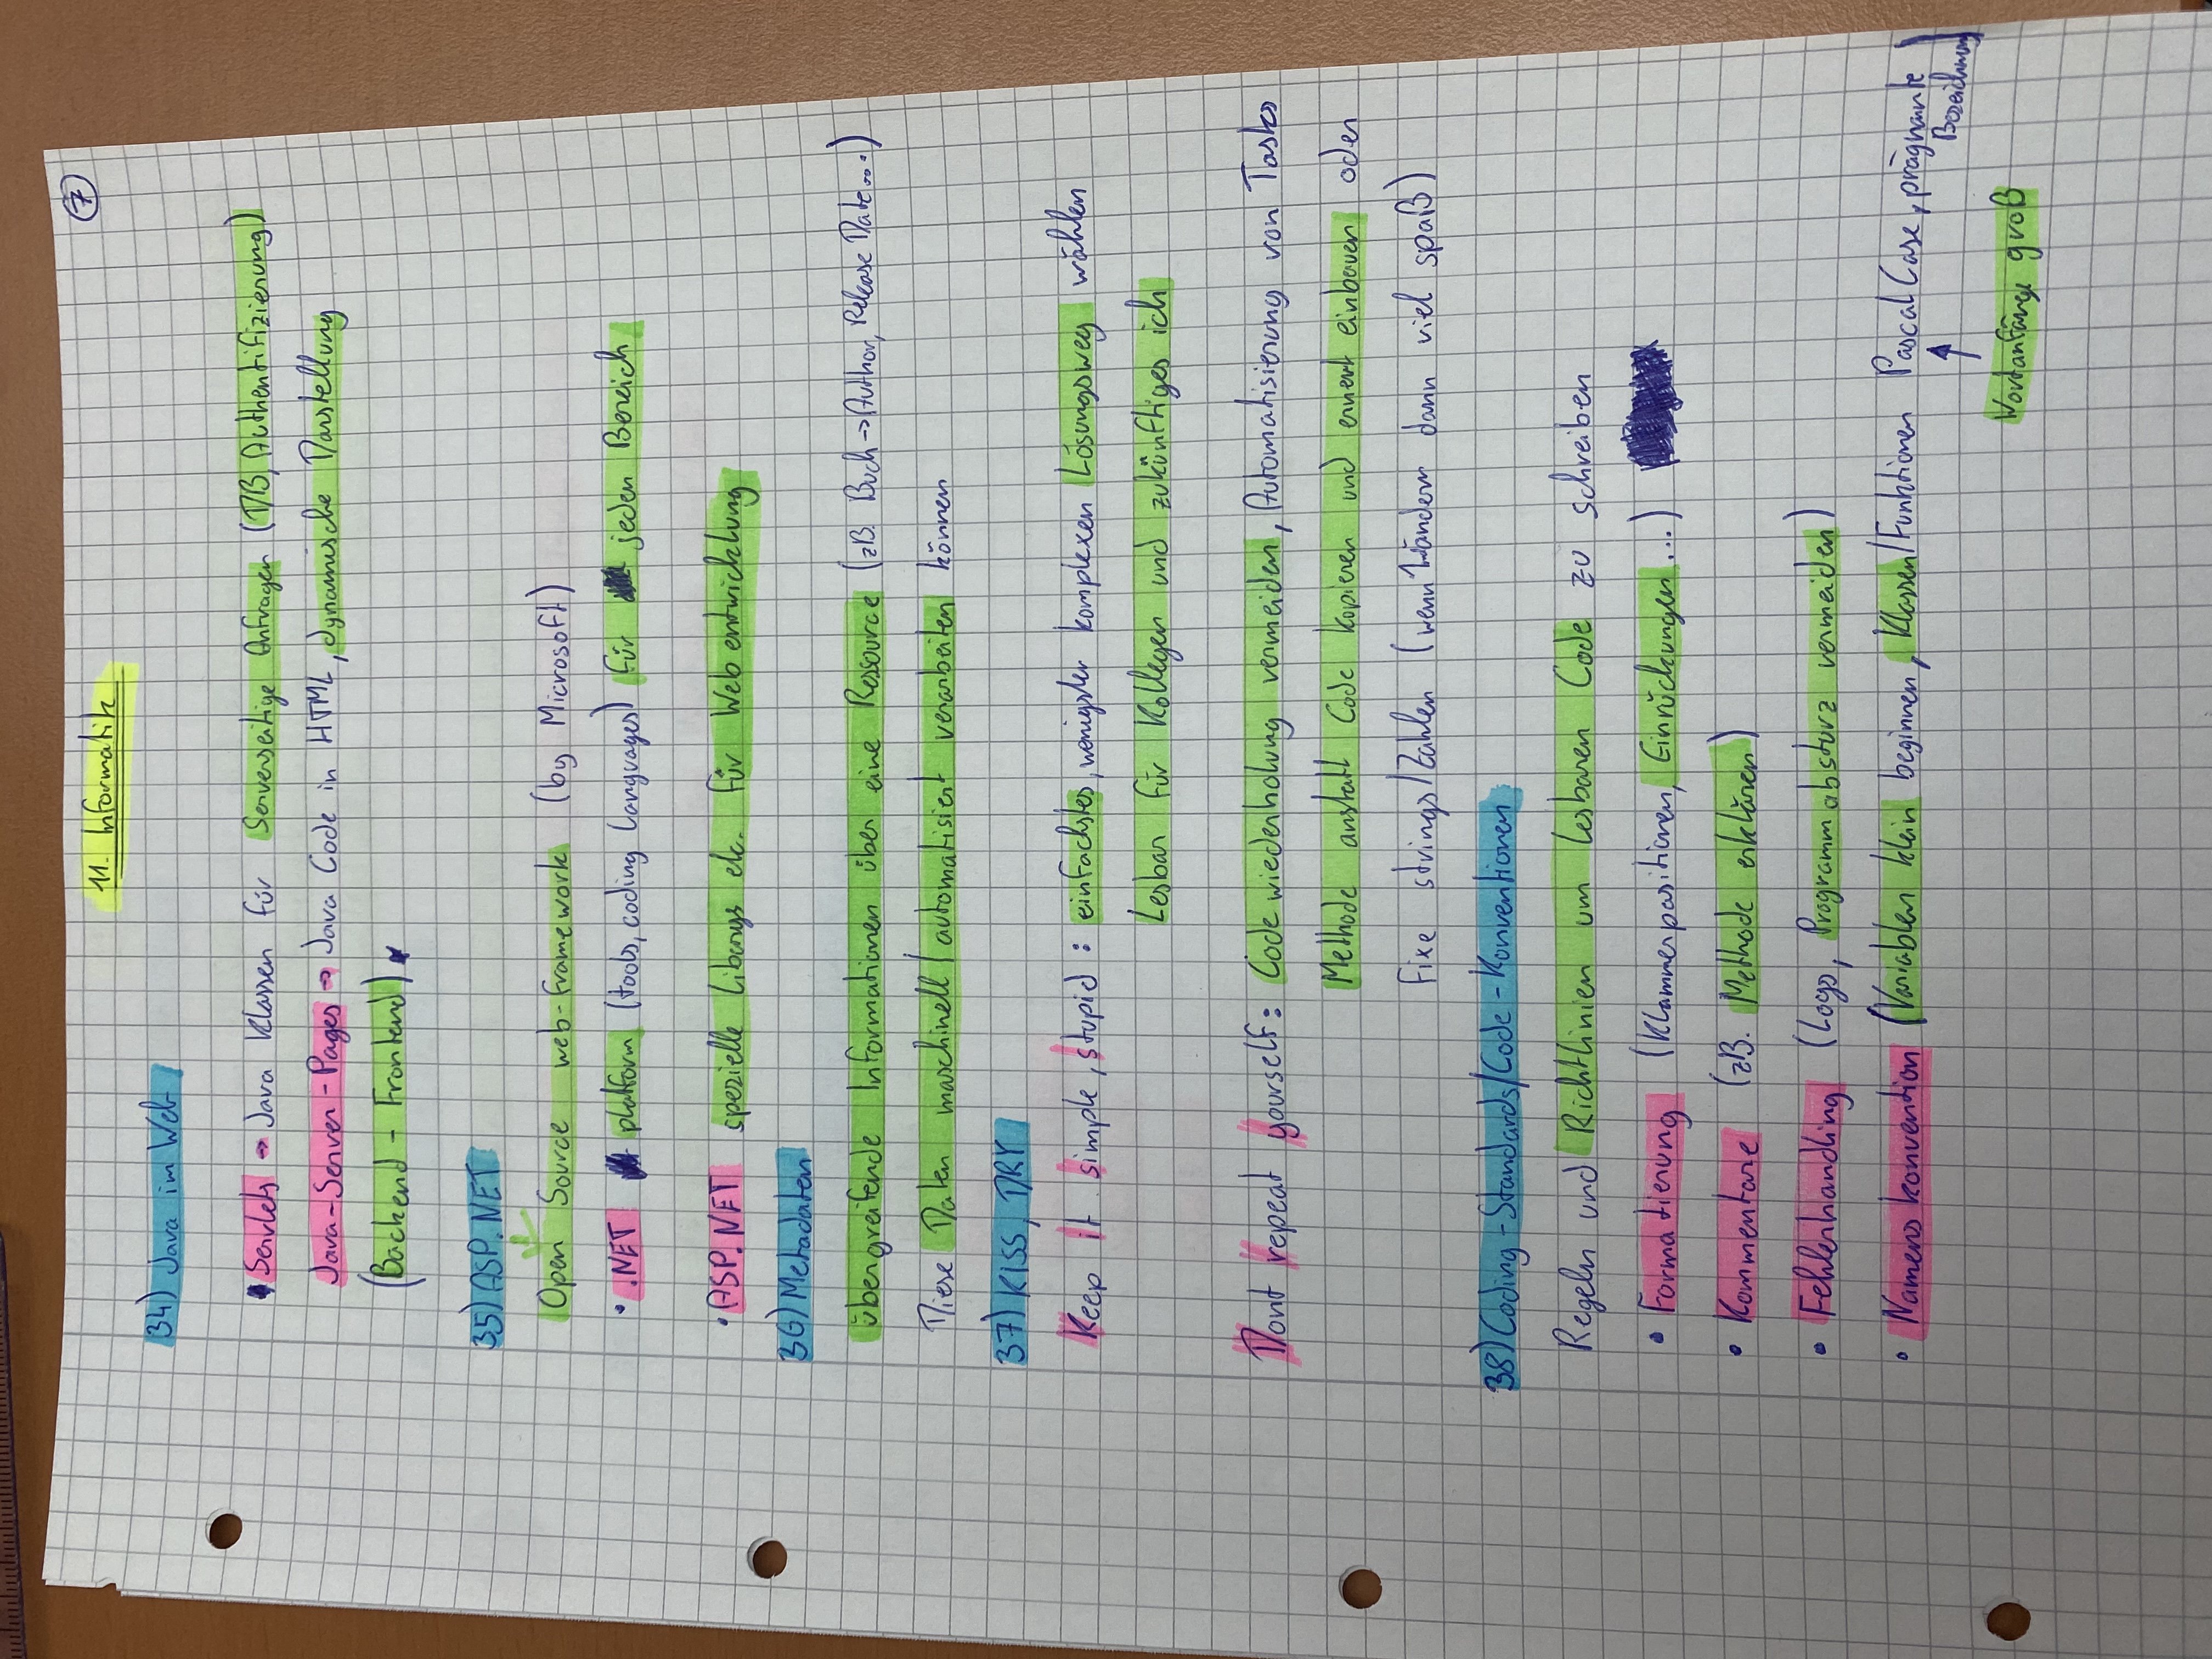 11. Informatik
7
34) Java im Web
Servlets → Java Klassen für Serverseitige Anfragen (DB, Authentifizierung)
Java-Server-Pages → Java Code in HTML, dynamische Darstellung
(Backend - Frontend)
35) ASP.NET
Open Source web-framework (by Microsoft)
• .NET platform (tools, coding languages) für jeden Bereich
• ASP.NET spezielle Libarys etc. für Webentwicklung
36) Metadaten
übergreifende Informationen über eine Ressource (zB. Buch → Author, Release Date....)
Diese Daten maschinell/automatisiert verarbeiten können
37) KISS, DRY
Keep it simple, stupid: einfachstes, wenigster komplexen Lösungsweg wählen
Lesbar für Kollegen und zukünftiges ich
Dont repeat yourself: Codewiederholung vermeiden, Automatisierung von Tasks
Methode anstatt Code kopieren und erneut einbauen oder
fixe strings/Zahlen (wenn ändern dann viel spaß)
38) Coding-Standards/Code-Konventionen
Regeln und Richtlinien um lesbaren Code zu schreiben
• Formatierung (Klammerpositionen, Einrückungen...)
• Kommentare (zB. Methode erklären)
• Fehlerhandling (Logs, Programmabsturz vermeiden)
• Namenskonvention (Variablen klein beginnen, Klassen/Funktionen PascalCase, prägnante
Bezeichnung)
↑
Wortanfänge groß